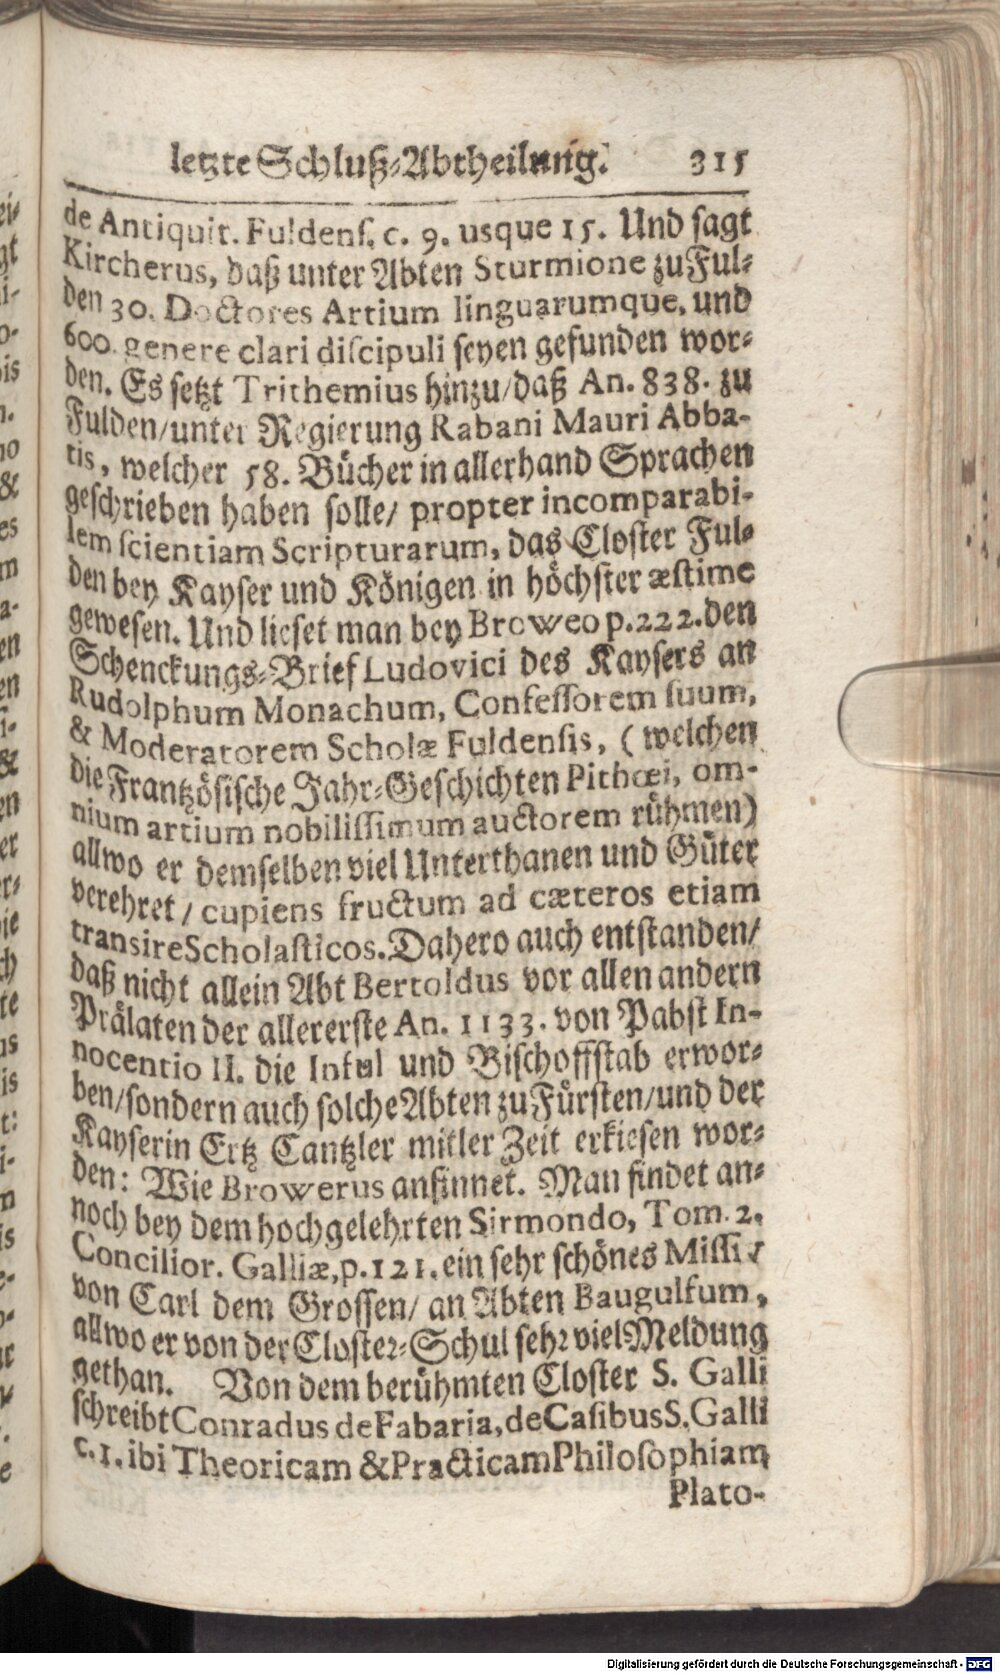 letzte Schluß-Abtheilung. 315
de Antiquit. Fuldens. c. 9. usque 15. Und sagt
Kircherus, daß unter Abten Sturmione zu Ful-
den 30. Doctores Artium linguarumque, und
600. genere clari discipuli seyen gefunden wor-
den. Es setzt Trithemius hinzu/daß An. 838. zu
Fulden/unter Regierung Rabani Mauri Abba-
tis, welcher 58. Bücher in allerhand Sprachen
geschrieben haben solle/ propter incomparabi-
lem scientiam Scripturarum, das Closter Ful-
den bey Kayser und Königen in höchster æstime
gewesen. Und lieset man bey Broweo p.222. den
Schenckungs-Brief Ludovici des Kaysers an
Rudolphum Monachum, Confessorem suum,
& Moderatorem Scholæ Fuldensis, (welchen
die Frantzösische Jahr-Geschichten Pithœi, om-
nium artium nobilissimum auctorem rühmen)
allwo er demselben viel Unterthanen und Güter
verehret / cupiens fructum ad cæteros etiam
transire Scholasticos. Dahero auch entstanden/
daß nicht allein Abt Bertoldus vor allen andern
Prälaten der allererste An. 1133. von Pabst In-
nocentio II. die Inful und Bischoffstab erwor-
ben/sondern auch solche Abten zu Fürsten/und der
Kayserin Ertz Cantzler mitler Zeit erkiesen wor-
den: Wie Browerus ansinnet. Man findet an-
noch bey dem hochgelehrten Sirmondo, Tom. 2.
Concilior. Galliæ, p. 121. ein sehr schönes
von Carl dem Grossen/ an Abten Baugulfum,
allwo er von der Closter-Schul sehr viel Meldung
gethan. Von dem berühmten Closter S. Galli
schreibt Conradus de Fabaria, de Casibus S. Galli
c. 1. ibi Theoricam & Practicam Philosophiam
Plato-
Digitalisierung gefördert durch die Deutsche Forschungsgemeinschaft - DFG